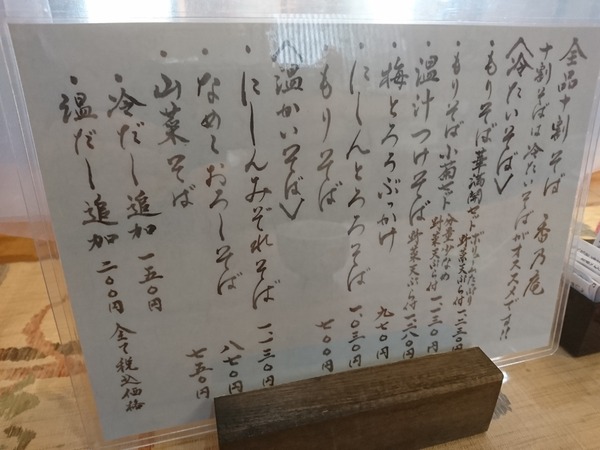 全品十割そば 香乃庵
十割そばは冷たいそばがオススメです!!
〈冷たいそば〉
・もりそば華満開セット ボリュームたっぷり 野菜天ぷら付 一、二三〇円
・もりそば小菊セット 分量少なめ 野菜天ぷら付 一、一三〇円
・温汁つけそば 野菜天ぷら付 一、一八〇円
・梅とろろぶっかけ 九七〇円
・にしんとろろそば 一、〇三〇円
・もりそば 七〇〇円
〈温かいそば〉
・にしんみぞれそば 一、一三〇円
・なめこおろしそば 八七〇円
・山菜そば 七五〇円
・冷だし追加 一五〇円
・温だし追加 二〇〇円
全て税込価格